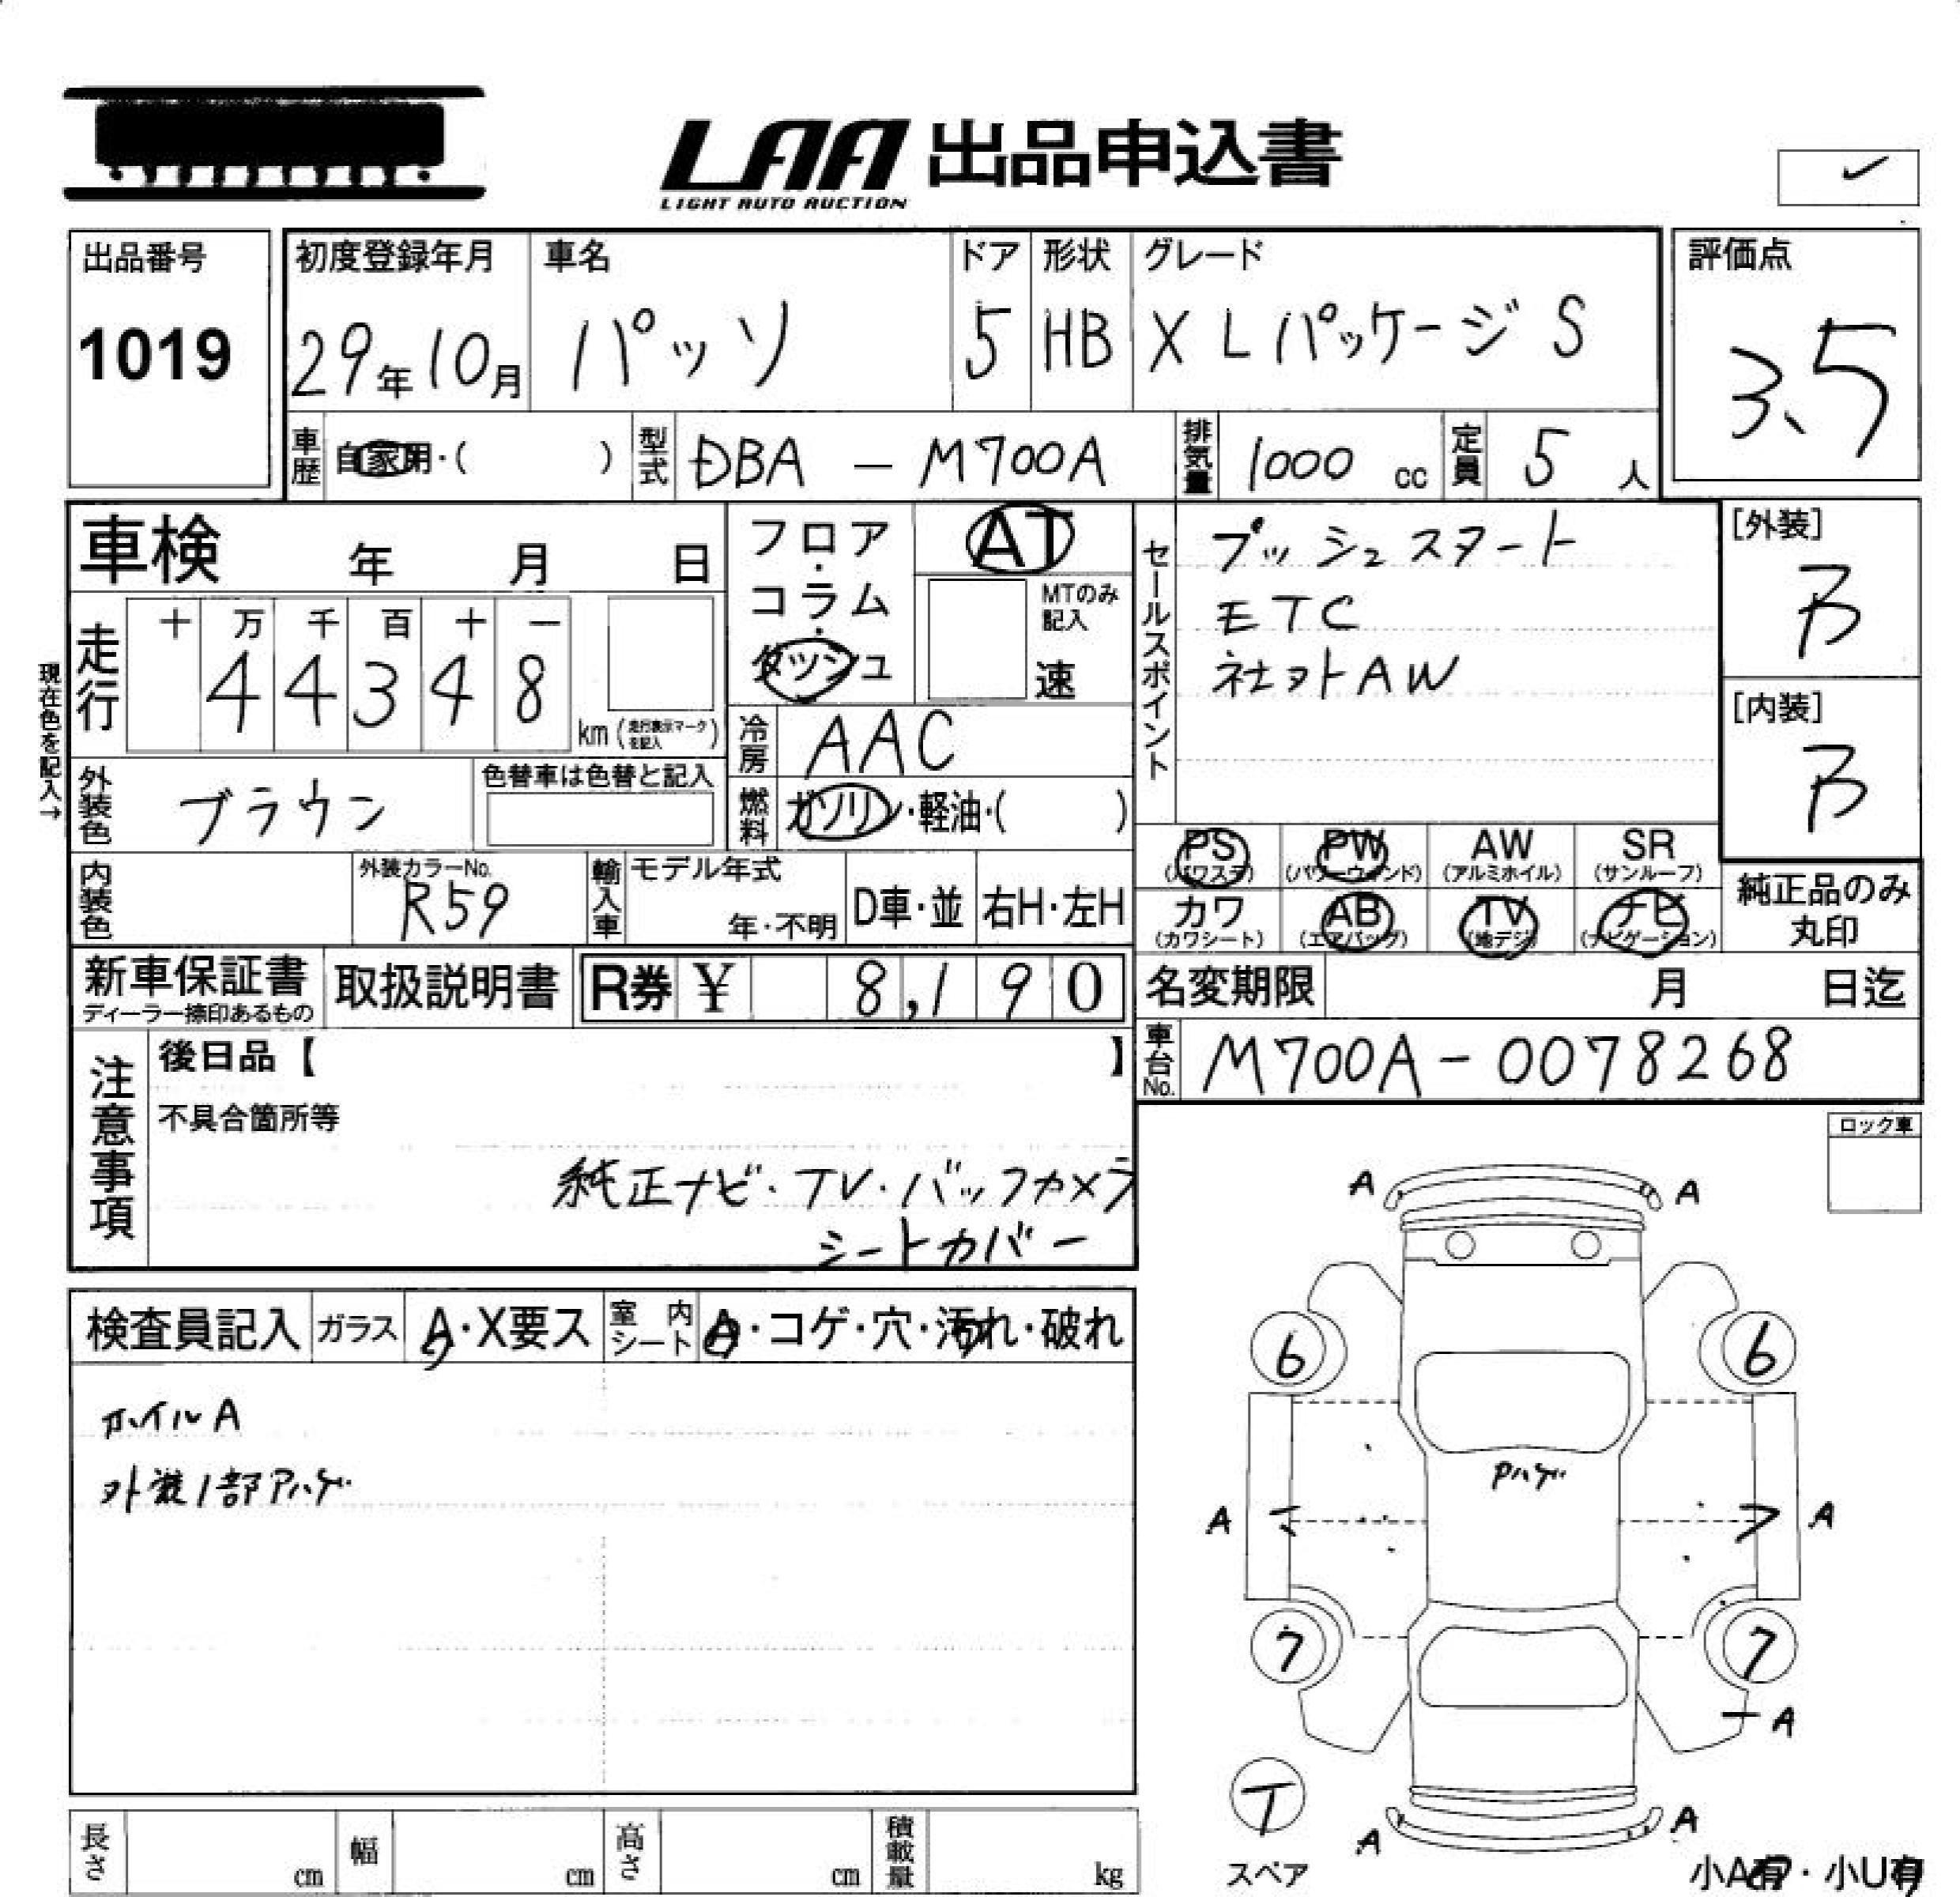 LAA 出品申込書
LIGHT AUTO AUCTION
出品番号
1019
初度登録年月
29年10月
車名
パッソ
ドア
5
形状
HB
グレード
X Lパッケージ S
評価点
3.5
車歴
自家用・( )
型式
DBA - M700A
排気量
1000 cc
定員
5 人
車検 年 月 日
フロア・コラム・ダッシュ
AT
MTのみ記入
速
セールスポイント
プッシュスタート
ETC
社外AW
[外装]
B
[内装]
B
現在色を記入→
走行
十 万 千 百 十 一
4 4 3 4 8
km (走行表示マークを記入)
冷房
AAC
燃料
ガソリン・軽油・( )
外装色
ブラウン
色替車は色替と記入
内装色
外装カラーNo.
R59
輸入車
モデル年式
年・不明
D車・並
右H・左H
PS
(パワステ)
PW
(パワーウィンド)
AW
(アルミホイル)
SR
(サンルーフ)
カワ
(カワシート)
AB
(エアバッグ)
TV
(地デジ)
ナビ
(ナビゲーション)
純正品のみ
丸印
新車保証書
ディーラー捺印あるもの
取扱説明書
R券 ¥ 8,190
名変期限 月 日迄
車台No.
M700A-0078268
注意事項
後日品【 】
不具合箇所等
純正ナビ・TV・バックカメラ
シートカバー
ロック車
検査員記入
ガラス
A・X要ス
室内シート
A・コゲ・穴・汚れ・破れ
ホイルA
外装1部Pハゲ
A A
6 6
Pハゲ
A A
7 7
A
T
スペア
A A
小A有・小U有
長さ cm
幅 cm
高さ cm
積載量 kg